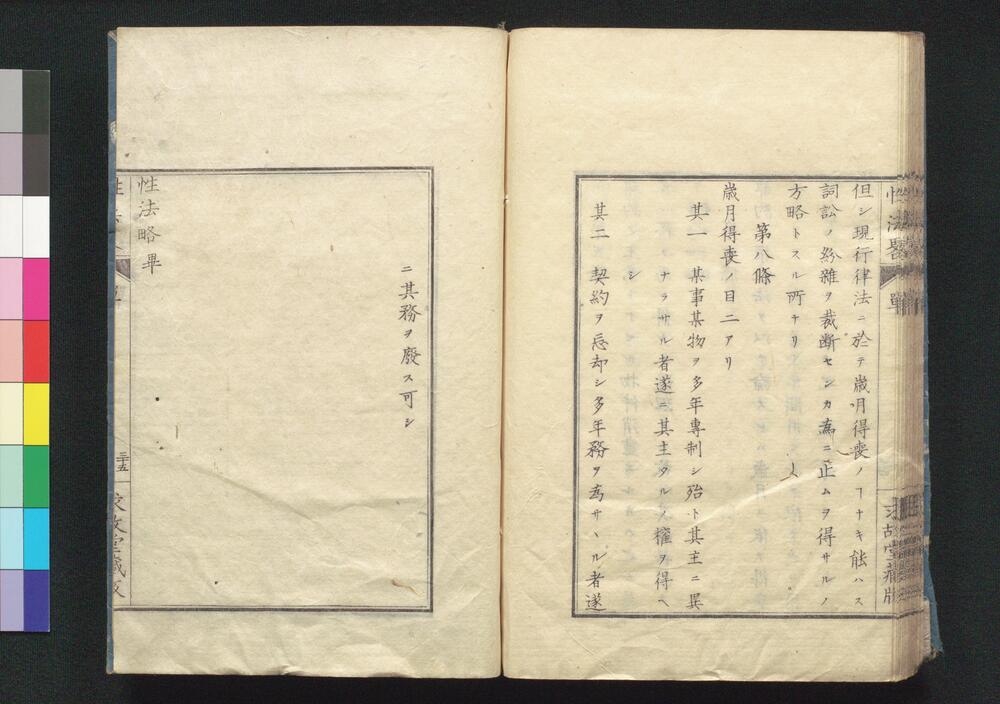 性法畧 單
汲古堂藏版
但シ現行律法ニ於テ歳月得喪ノヿナキ能ハス
詞訟ノ紛雑ヲ裁断センカ為ニ正ムヲ得サルノ
方略トスル所ナリ
第八條
歳月得喪ノ目二アリ
其一 某事某物ヲ多年專制シ殆ト其主ニ異
ナラサル者遂ニ其主タルノ權ヲ得ヘ
シ
其二 契約ヲ忘却シ多年務ヲ為サヽル者遂
ニ其務ヲ廢ス可シ
性法略畢
三十五